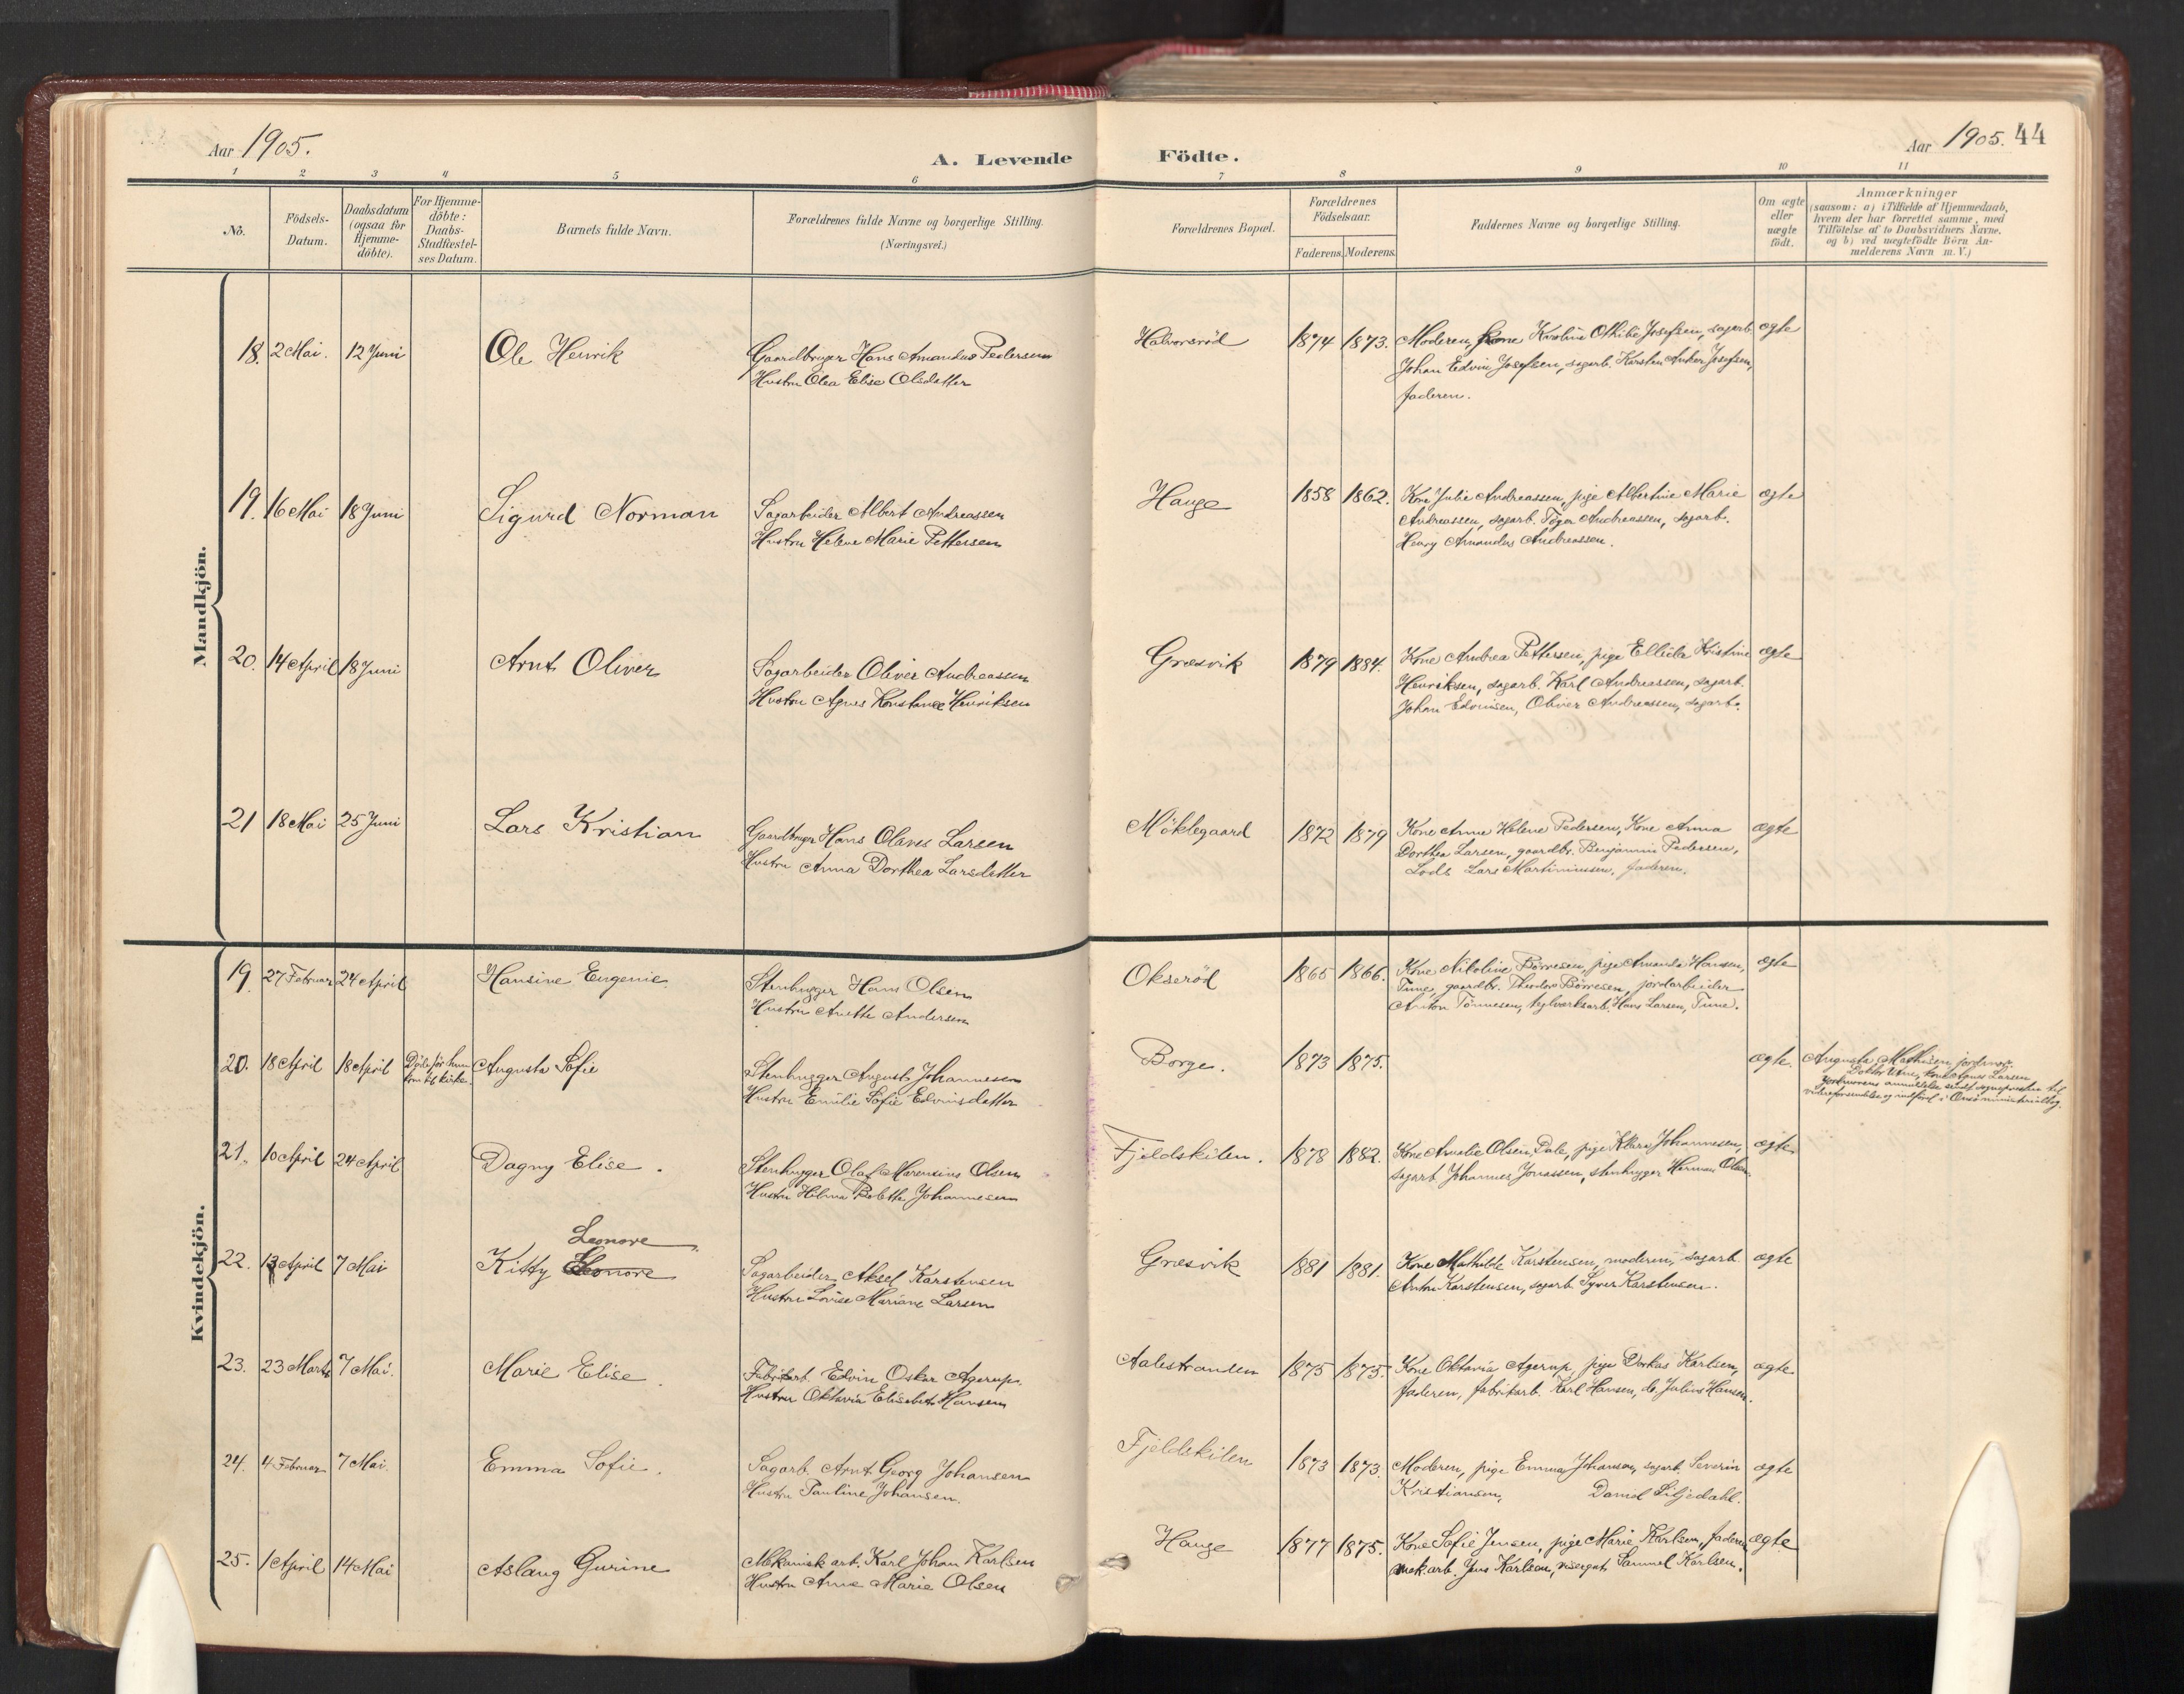 Aar 1905.
A. Levende Födte.
Aar 1905. 44
1 2 3 4 5 6 7 8 9 10 11
No.
Födsels-
Datum.
Daabsdatum
(ogsaa for
Hjemme-
döbte).
For Hjemme-
döbte:
Daabs-
Stadfæstel-
ses Datum.
Barnets fulde Navn.
Forældrenes fulde Navne og borgerlige Stilling.
(Næringsvei.)
Forældrenes Bopæl.
Forældrenes
Födselsaar.
Faderens. Moderens.
Faddernes Navne og borgerlige Stilling.
Om ægte
eller
uægte
födt.
Anmærkninger
(saasom: a) i Tilfælde af Hjemmedaab,
hvem der har forrettet samme, med
Tilföielse af to Daabsvidners Navne,
og b) ved uægtefödte Börn An-
melderens Navn m. V.)
Mandkjön.
18. 2 Mai. 12 Juni Ole Henrik
Gaardbruger Hans Amandus Pedersen
Hustru Olea Elise Olsdatter
Halvorsröd 1874 1873.
Moderen, kone Karoline Othilie Josefsen, sagarb.
Johan Edvin Josefsen, sagarb. Karsten Anker Josefsen,
faderen.
ægte
19. 16 Mai 18 Juni Sigurd Norman
Sagarbeider Albert Andreassen
Hustru Helene Marie Pettersen
Hauge 1858 1862.
Kone Julie Andreassen, pige Albertine Marie
Andreassen, sagarb. Andreassen, sagarb.
Henry Amandus Andreassen.
ægte
20. 14 April 18 Juni Arnt Oliver
Sagarbeider Oliver Andreassen
Hustru Agnes Konstance Henriksen
Græsvik 1879 1884.
Kone Andrea Pettersen, pige Kristine
Henriksen, sagarb. Karl Andreassen, sagarb.
Johan Edvinsen, Oliver Andreassen, sagarb.
ægte
21 18 Mai 25 Juni Lars Kristian
Gaardbruger Hans Olaves Larsen
Hustru Anna Dorthea Larsdatter
Möklegaard 1872 1879
Kone Anne Helene Pedersen, Kone Anna
Dorthea Larsen, gaardbr. Benjamin Pedersen,
Lods Lars Martiniussen, faderen.
ægte
Kvindekjön.
19 27 Februar 24 April Hansine Eugenie
Stenhugger Hans Olsen
Hustru Anette Andersen
Okseröd 1865 1866.
Kone Nikoline Börresen, pige Amanda Hansen,
Tune, gaardbr. Theodor Börresen, jordarbeider
Anton Tönnesen, teglverksarb. Hans Larsen, Tune.
ægte
20. 18 April 18 April
Döde før hun
kom til kirke.
Augusta Sofie
Stenhugger August Johannesen
Hustru Emilie Sofie Edvinsdatter
Borge. 1873 1875.
ægte.
Augusta Mathisen, jordemor.
kone Agnes Larsen
Jordmorens anmeldelse sendt sognepresten til
videreforsendelse og indförsel i Onsö ministerialbog.
21. 10 April 24 April Dagny Elise.
Stenhugger Olaf Marensius Olsen
Hustru Hilma Bolette Johannesen
Fjeldskilen. 1878 1882.
Kone Amalie Olsen, Dale, pige Klara Johannesen,
sagarb. Johannes Jonassen, stenhugger Herman Olsen.
ægte
Leonore
22. 13 April 7 Mai Kitty Eleonore
Sagarbeider Aksel Karstensen
Hustru Lovise Mariane Larsen
Græsvik 1881 1881.
Kone Mathilde Karstensen, moderen, sagarb.
Anton Karstensen, sagarb. Syver Karstensen.
ægte
23. 23 Marts 7 Mai. Marie Elise.
Fabrikarb. Edvin Oskar Agerup.
Hustru Oktavia Elisabeth Hansen
Aalestranden 1875 1875.
Kone Oktavia Agerup, pige Dorkas Karlsen,
faderen, fabrikarb. Karl Hansen, do. Julius Hansen.
ægte
24. 4 Februar 7 Mai. Emma Sofie.
Sagarb. Arnt Georg Johansen
Hustru Pauline Johansen.
Fjeldskilen 1873 1873.
Moderen, pige Emma Johansen, sagarb. Severin
Kristiansen, Daniel Liljedahl.
ægte
25. 1 April 14 Mai Aslaug Gurine
Mekanisk arb. Karl Johan Karlsen
Hustru Anne Marie Olsen
Hauge 1877 1875.
Kone Sofie Jensen, pige Marie Karlsen, faderen
mek. arb. Jens Karlsen, Samuel Karlsen.
ægte